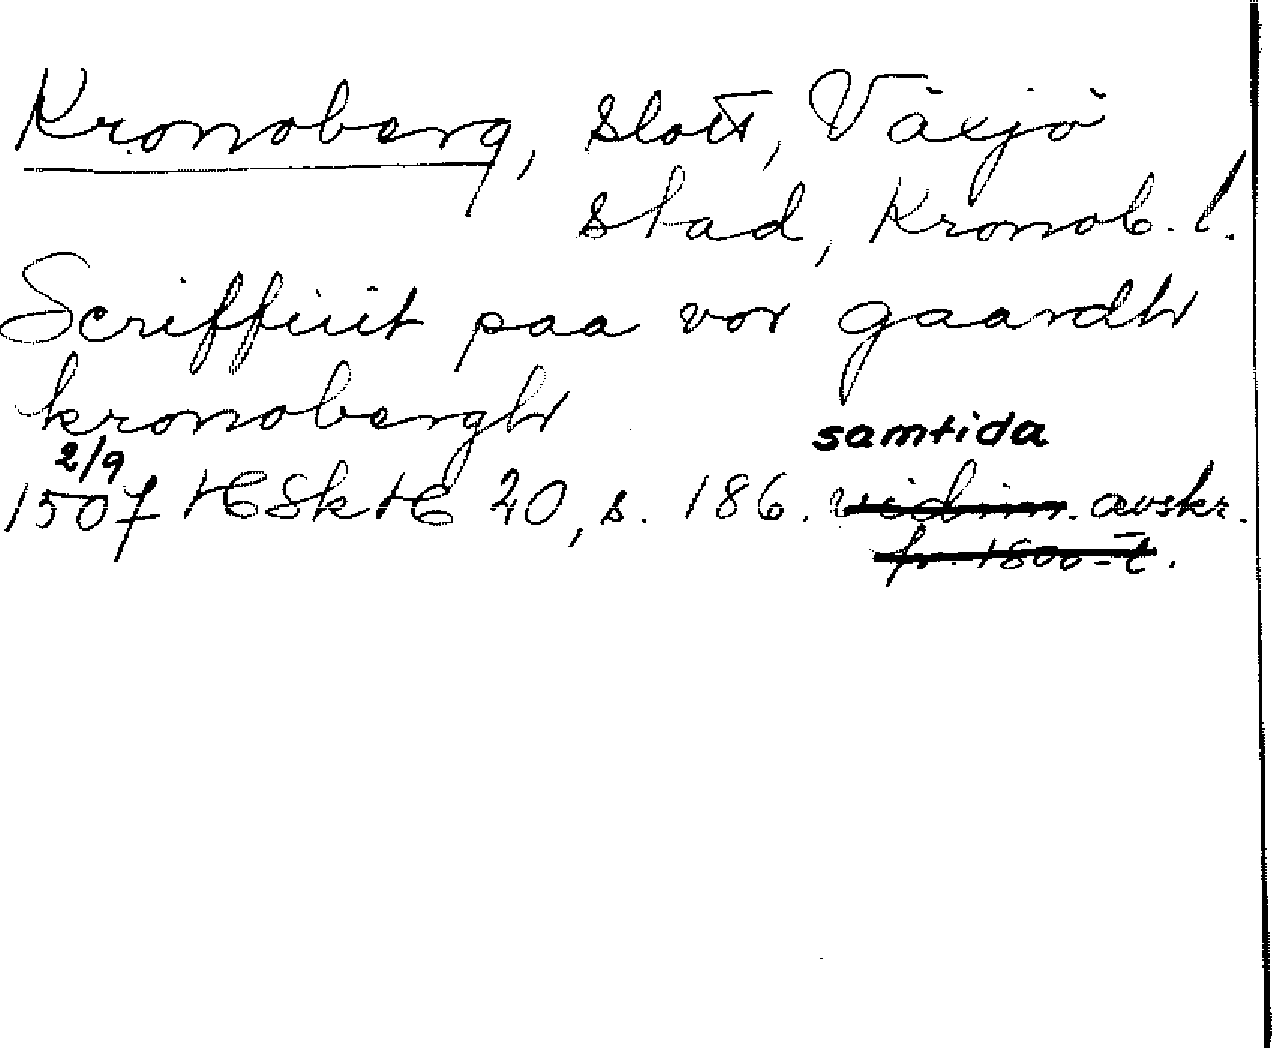 Kronoberg, slott, Växjö
stad, Kronob. l.
Scriffuit paa vor gaardh
kronobergh
samtida
2/9
1507 HSkH 20, s. 186. vidim. avskr.
fr. 1800-t.